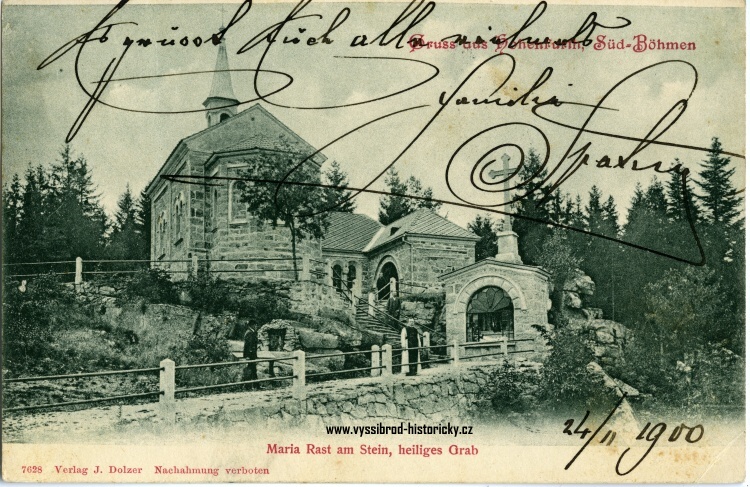 Es grüsst Euch alle
Gruss aus Hohenfurth, Süd-Böhmen
Familie
24/11 1900
www.vyssibrod-historicky.cz
Maria Rast am Stein, heiliges Grab
7628 Verlag J. Dolzer Nachahmung verboten